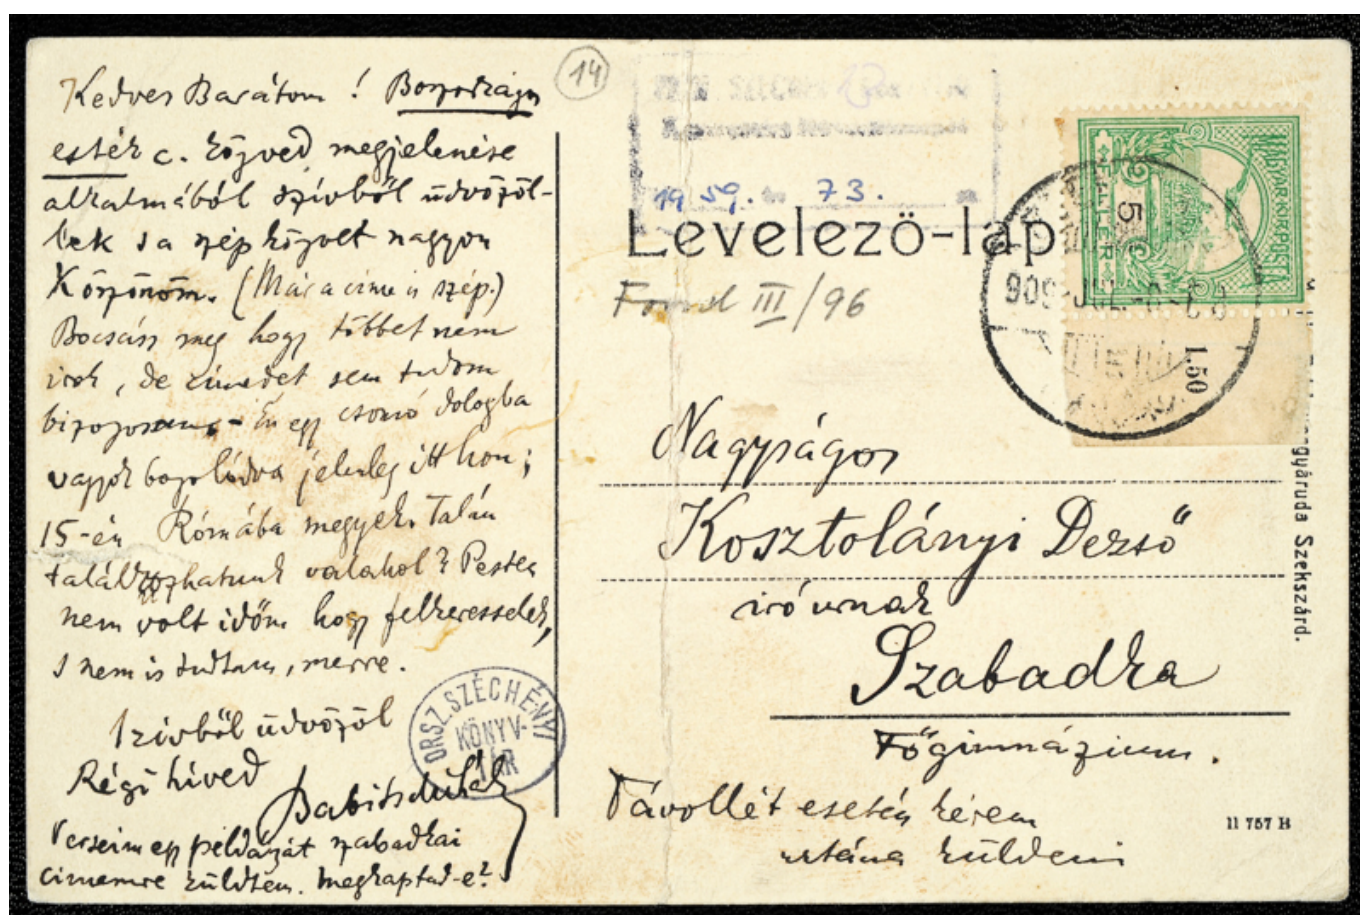 Kedves Barátom! Boszorkányos
esték c. könyved megjelenése
alkalmából szívből üdvözöl-
lek s a szép könyvet nagyon
köszönöm. (Már a cime is szép.)
Bocsáss meg hogy többet nem
irok, de címedet sem tudom
bizonyosan. - Én egy csomó dologba
vagyok bogolódva jelenleg itthon;
15-én Rómába megyek. Talán
találkozhatunk valahol? Pesten
nem volt időm hogy felkeresselek,
s nem is tudtam, merre.
Szivből üdvözöl
Régi híved
Babits Mihály
Verseim egy példányát szabadkai
cimemre küldtem. Megkaptad-e?
14
1959. 73.
Levelező-lap
Fond III/96
MAGYAR KIR. POSTA
5
FILLÉR
909 JUL
1.50
Nagyságos
Kosztolányi Dezső
iró urnak
Szabadka
Főgimnázium.
Távollét esetén kérem
utána küldeni
ORSZ. SZÉCHÉNYI
KÖNYV-
TÁR
11 757 B
Szekszárd.